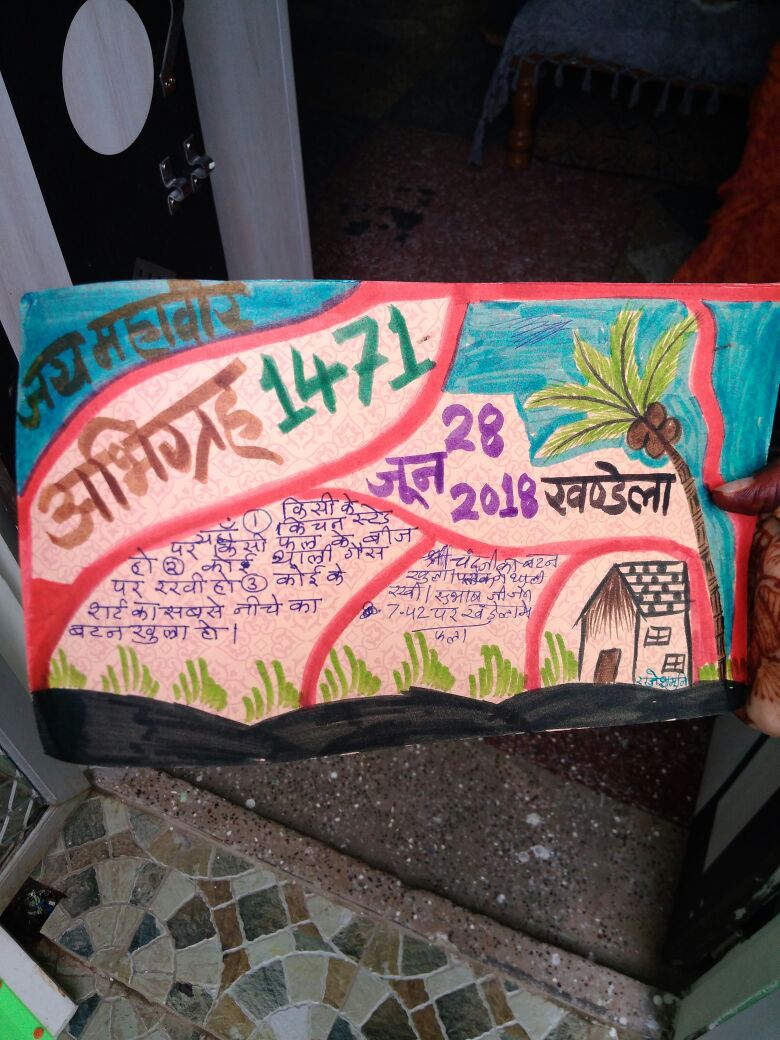 जय महावीर
अभिग्रह 1471
28
जून 2018 खण्डेला
यहाँ ① किसी के
पर किसी किचन स्टेंड
हो ② कोई फल के बीज
पर रखी हो ③ थाली गैस
कोई के
शर्ट का सबसे नीचे का
बटन खुला हो।
श्रीचंदजी का बटन
खुला
रखी। सुभाष जी जैन
7-42 पर खंडेला में
फला
राजेशमुनि